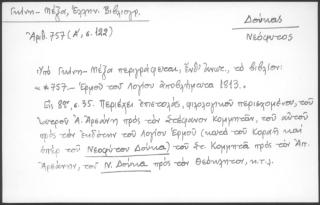 Γκίνη - Μέξα, Ἑλλην. Βιβλιογρ.
Ἀριθ. 757 (Α΄, σ. 122)
Δούκας
Νεόφυτος
Ὑπὸ Γκίνη - Μέξα περιγράφεται, τὸ βιβλίον:
« *757.- Ἑρμοῦ τοῦ Λογίου ἀποβλήματα 1813.»
Εἰς 8ον, σ. 35. Περιέχει ἐπιστολάς, φιλολογικοῦ περιεχομένου, τοῦ
ἰατροῦ Α. Ἀρσάνη πρὸς τὸν Στέφανον Κομμητᾶν, τοῦ αὐτοῦ
πρὸς τὸν ἐκδότην τοῦ Λογίου Ἑρμοῦ (κατὰ τοῦ Κοραῆ καὶ
ὑπὲρ τοῦ Νεοφύτου Δούκα) τοῦ Στ. Κομμητᾶ πρὸς τὸν Ἀπ.
Ἀρσάκην, τοῦ Ν. Δούκα πρὸς τὸν Θεόκλητον, κ.τ.λ.